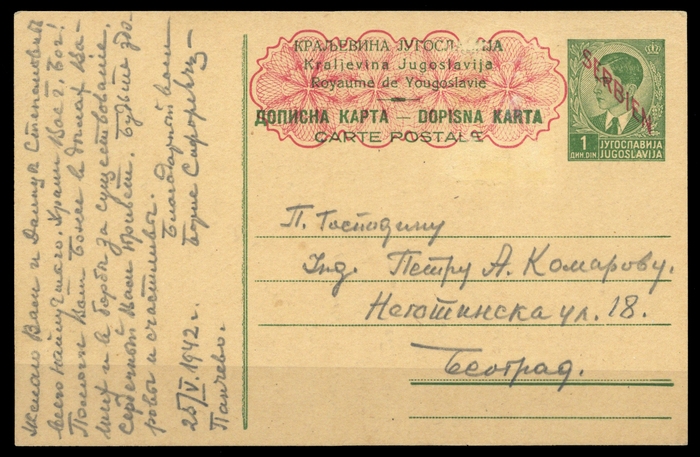 КРАЉЕВИНА ЈУГОСЛАВИЈА
Kraljevina Jugoslavija
Royaume de Yougoslavie
ДОПИСНА КАРТА — DOPISNA KARTA
CARTE POSTALE
SERBIEN
1
ДИН. DIN.
ЈУГОСЛАВИЈА
JUGOSLAVIJA
П. Господину
Инд. Петру А. Комарову.
Неготинска ул. 18.
Београд.
Желаю Вам и Степановны
всего наилучшего. Храни Вас г. Бог!
Помоги Вам Боже в Ва-
ших и в борьбе за существование.
Сердечный Вам привет. Будьте здо-
ровы и счастливы.
Благодарный вам
Борис
25/V. 1942 г.
Панчево.